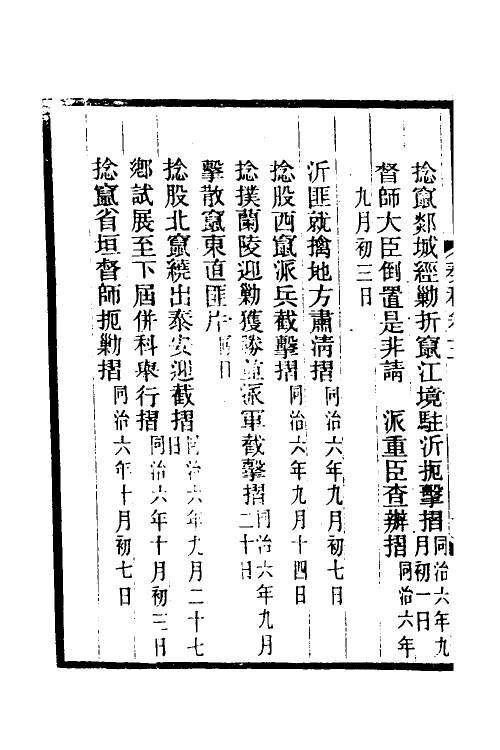 捻竄郯城經勦折竄江境駐沂扼擊摺同治六年九月初一日
督師大臣倒置是非請　派重臣查辦摺同治六年
九月初三日
沂匪就擒地方肅清摺同治六年九月初七日
捻股西竄派兵截擊摺同治六年九月十四日
捻撲蘭陵迎勦獲勝並派軍截擊摺同治六年九月二十日
擊散竄東直匪片同日
捻股北竄繞出泰安迎截摺同治六年九月二十七日
鄉試展至下屆併科舉行摺同治六年十月初三日
捻竄省垣督師扼勦摺同治六年十月初七日